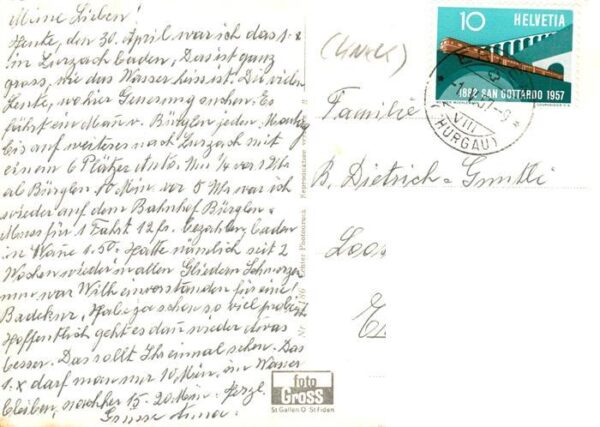 Meine Lieben!
Heute, den 30. April war ich das 1.x
in Zurzach baden, Das ist ganz
gross, wie das Wasser heiss ist. Die vielen
Leute, wo hier Genesung suchen. Es
führt ein Mann v. Bürglen jeden Montag
bis auf weiteres nach Zurzach mit
einem 6 Plätzer Auto. Um ¼ vor 1 Uhr
ab Bürglen. 10 Min. vor 6 Uhr war ich
wieder auf dem Bahnhof Bürglen.
Muss für 1 Fahrt 12 fr. bezahlen, baden
in Wanne 1.50. Hatte nämlich seit 2
Wochen wieder in allen Gliedern Schmerzen
nun war Willi einverstanden für eine
Badekur, Habe ja schon so viel probiert
Hoffentlich geht es dann wieder etwas
besser. Das sollt Ihr einmal sehen. Das
1.x darf man nur 10 Min. im Wasser
bleiben, nachher 15-20 Min. Herzl.
Grüsse Anna.
10 HELVETIA
1882 SAN GOTTARDO 1957
VIII
(THURGAU)
Familie
B. Dietrich-
foto
Gross
St Gallen O St Fiden